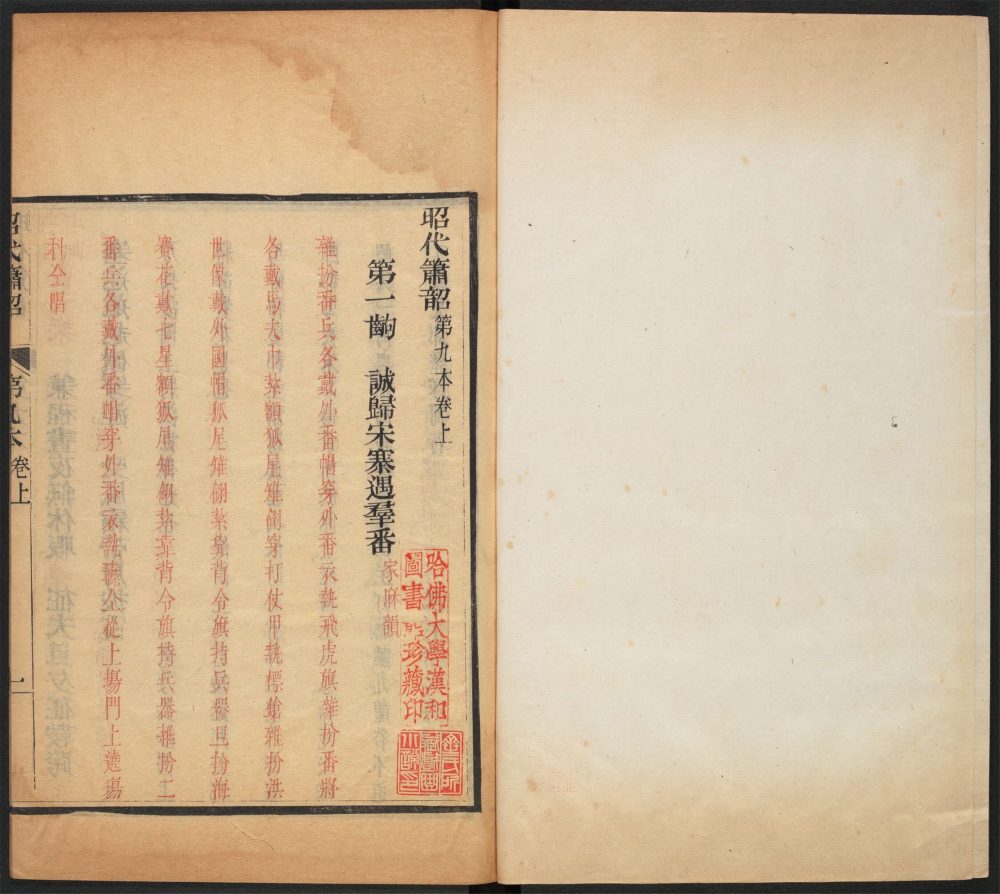 昭代簫韶第九本卷上
第一齣 誠歸宋寨遇羣番
家麻韻
雜扮番兵各戴外番帽穿外番衣執飛虎旗雜扮番將
各戴馬夫巾紥額狐尾雉翎穿打仗甲執標鎗雜扮洪
世傑戴外國帽狐尾雉翎紥靠背令旗持兵器旦扮海
賽花戴七星額狐尾雉翎紥靠背令旗持兵器雜扮二
番兵各戴外番帽穿外番衣執纛仝從上塲門上遶塲
科仝唱
昭代簫韶
第九本卷上
一
哈佛大學漢和
圖書 珍藏印